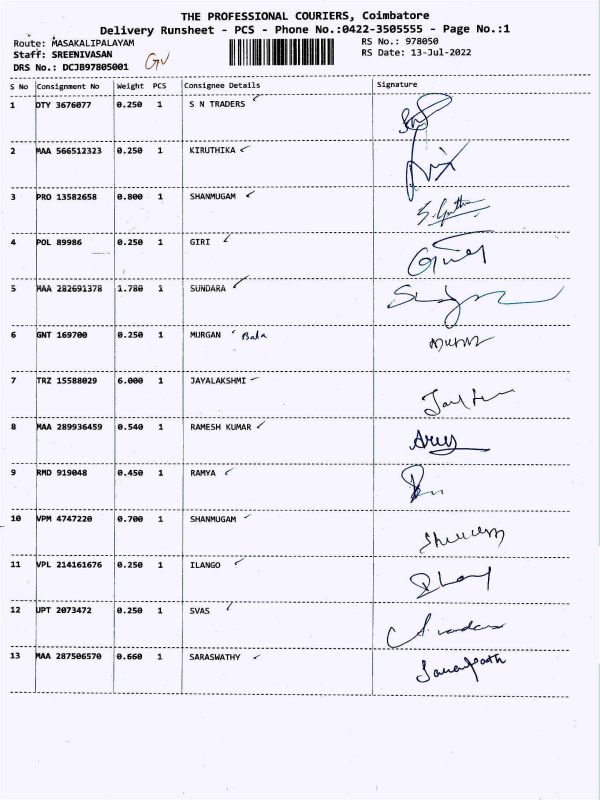 THE PROFESSIONAL COURIERS, Coimbatore
Delivery Runsheet - PCS - Phone No.:0422-3505555 - Page No.:1
Route: MASAKALIPALAYAM RS No.: 978050
Staff: SREENIVASAN RS Date: 13-Jul-2022
DRS No.: DCJB97805001
S No Consignment No Weight PCS Consignee Details Signature
1 OTY 3676077 0.250 1 S N TRADERS
2 MAA 566512323 0.250 1 KIRUTHIKA
3 PRO 13582658 0.800 1 SHANMUGAM
4 POL 89986 0.250 1 GIRI
5 MAA 282691378 1.780 1 SUNDARA
6 GNT 169700 0.250 1 MURGAN Bala
7 TRZ 15588029 6.000 1 JAYALAKSHMI
8 MAA 289936459 0.540 1 RAMESH KUMAR
9 RMD 919048 0.450 1 RAMYA
10 VPM 4747220 0.700 1 SHANMUGAM
11 VPL 214161676 0.250 1 ILANGO
12 UPT 2073472 0.250 1 SVAS
13 MAA 287506570 0.660 1 SARASWATHY